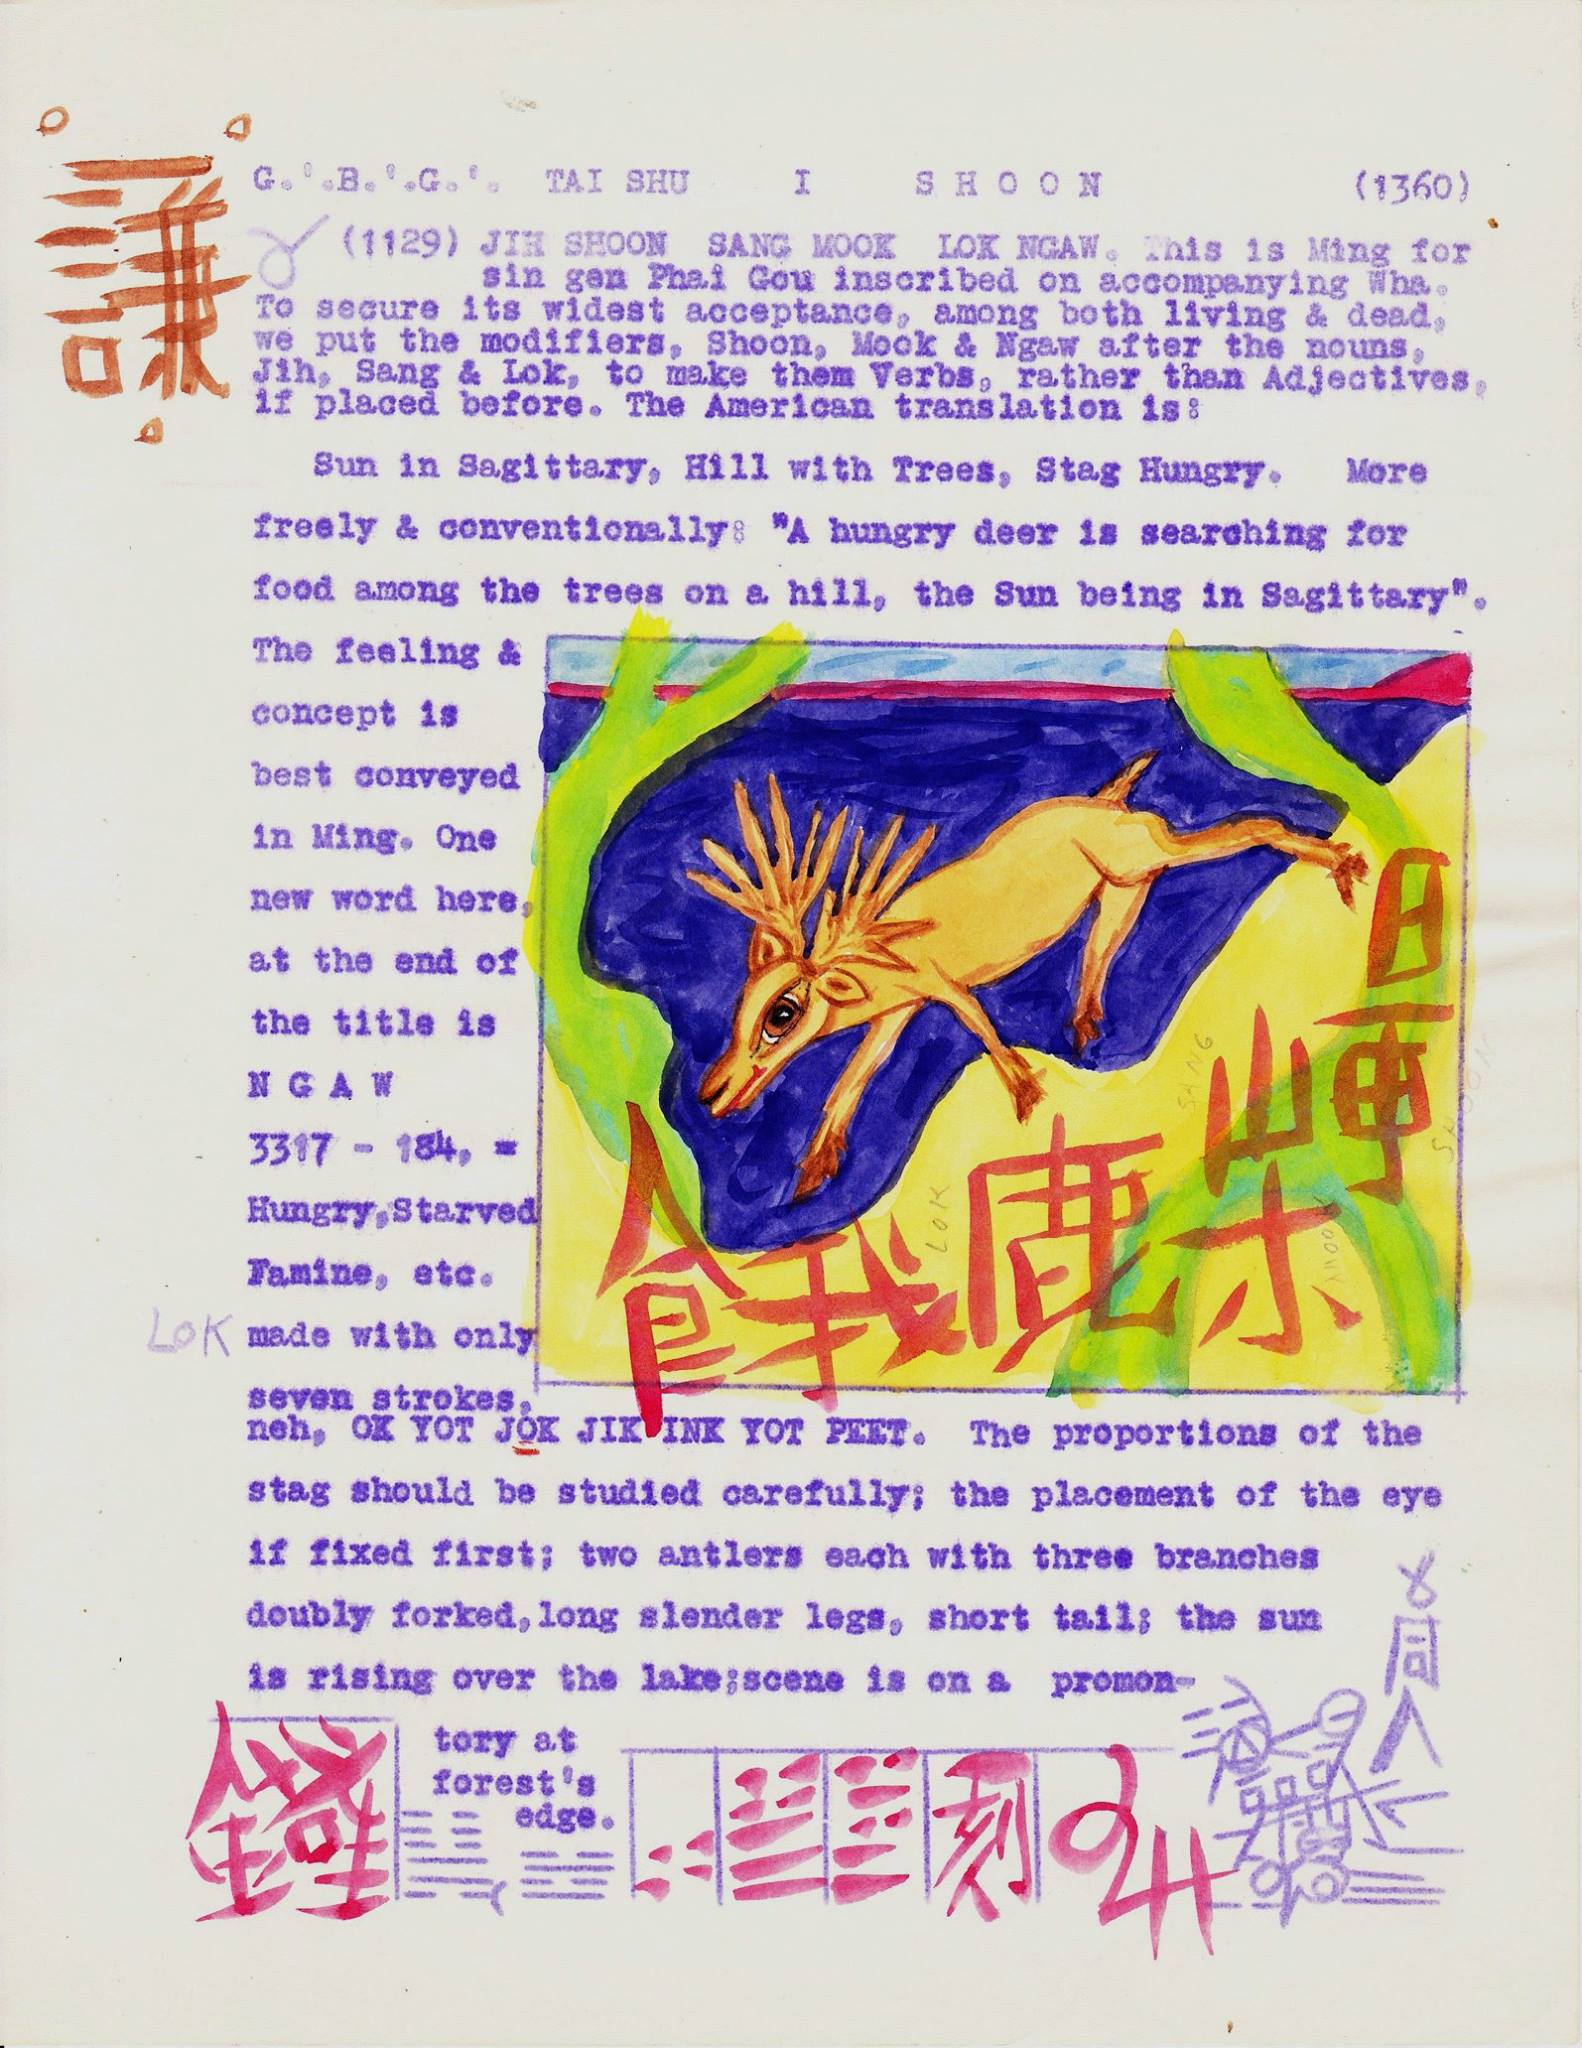 謙
G.'.B.'.G.'. TAI SHU I S H O O N (1360)
(1129) JIH SHOON SANG MOOK LOK NGAW. This is Ming for
sin gen Phai Gou inscribed on accompanying Wha.
To secure its widest acceptance, among both living & dead,
we put the modifiers, Shoon, Mook & Ngaw after the nouns,
Jih, Sang & Lok, to make them Verbs, rather than Adjectives,
if placed before. The American translation is:
Sun in Sagittary, Hill with Trees, Stag Hungry. More
freely & conventionally: "A hungry deer is searching for
food among the trees on a hill, the Sun being in Sagittary".
The feeling &
concept is
best conveyed
in Ming. One
new word here,
at the end of
the title is
N G A W
3317 - 184, =
Hungry, Starved
Famine, etc.
LOK made with only
seven strokes,
日
SHOON
山
SANG
木
MOOK
鹿
LOK
餓
neh, OK YOT JOK JIK INK YOT PEET. The proportions of the
stag should be studied carefully; the placement of the eye
if fixed first; two antlers each with three branches
doubly forked, long slender legs, short tail; the sun
is rising over the lake;scene is on a promon-
tory at
forest's
edge.
刻
同
人